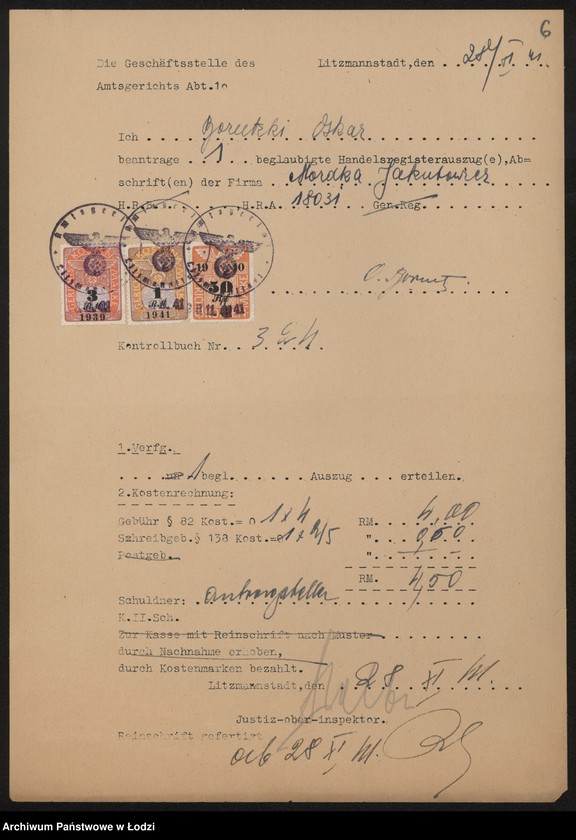 6
Die Geschäftsstelle des Litzmannstadt,den 28/XI 41.
Amtsgerichts Abt.1o
Ich Oskar
beantrage . 1 . . beglaubigte Handelsregisterauszug(e),Ab=
schrift(en) der Firma . Mordka Jakubowicz
H.R.B. H.R.A. 18031 Gen.Reg.
Amtsgericht Litzmannstadt
3 RM 1939
1 RM 1941
19 40 50 Rpf
Kontrollbuch Nr. . 3
1.Verfg.
1 begl. Auszug . . . erteilen.
2.Kostenrechnung:
Gebühr § 82 Kost.= o 1 x 4 RM. 4,00
Szhreibgeb.§ 138 Kost.=o 1 x 2/5 ". 0,50
Postgeb. ".
RM. 4,50
Schuldner: Antragsteller
K.II.Sch.
Zur Kasse mit Reinschrift nach Muster
durch Nachnahme erhoben,
durch Kostenmarken bezahlt.
Litzmannstadt,den . 28 XI 41.
Justiz-ober-inspektor.
Reinschrift gefertigt
ab 28 XI 41.
Archiwum Państwowe w Łodzi